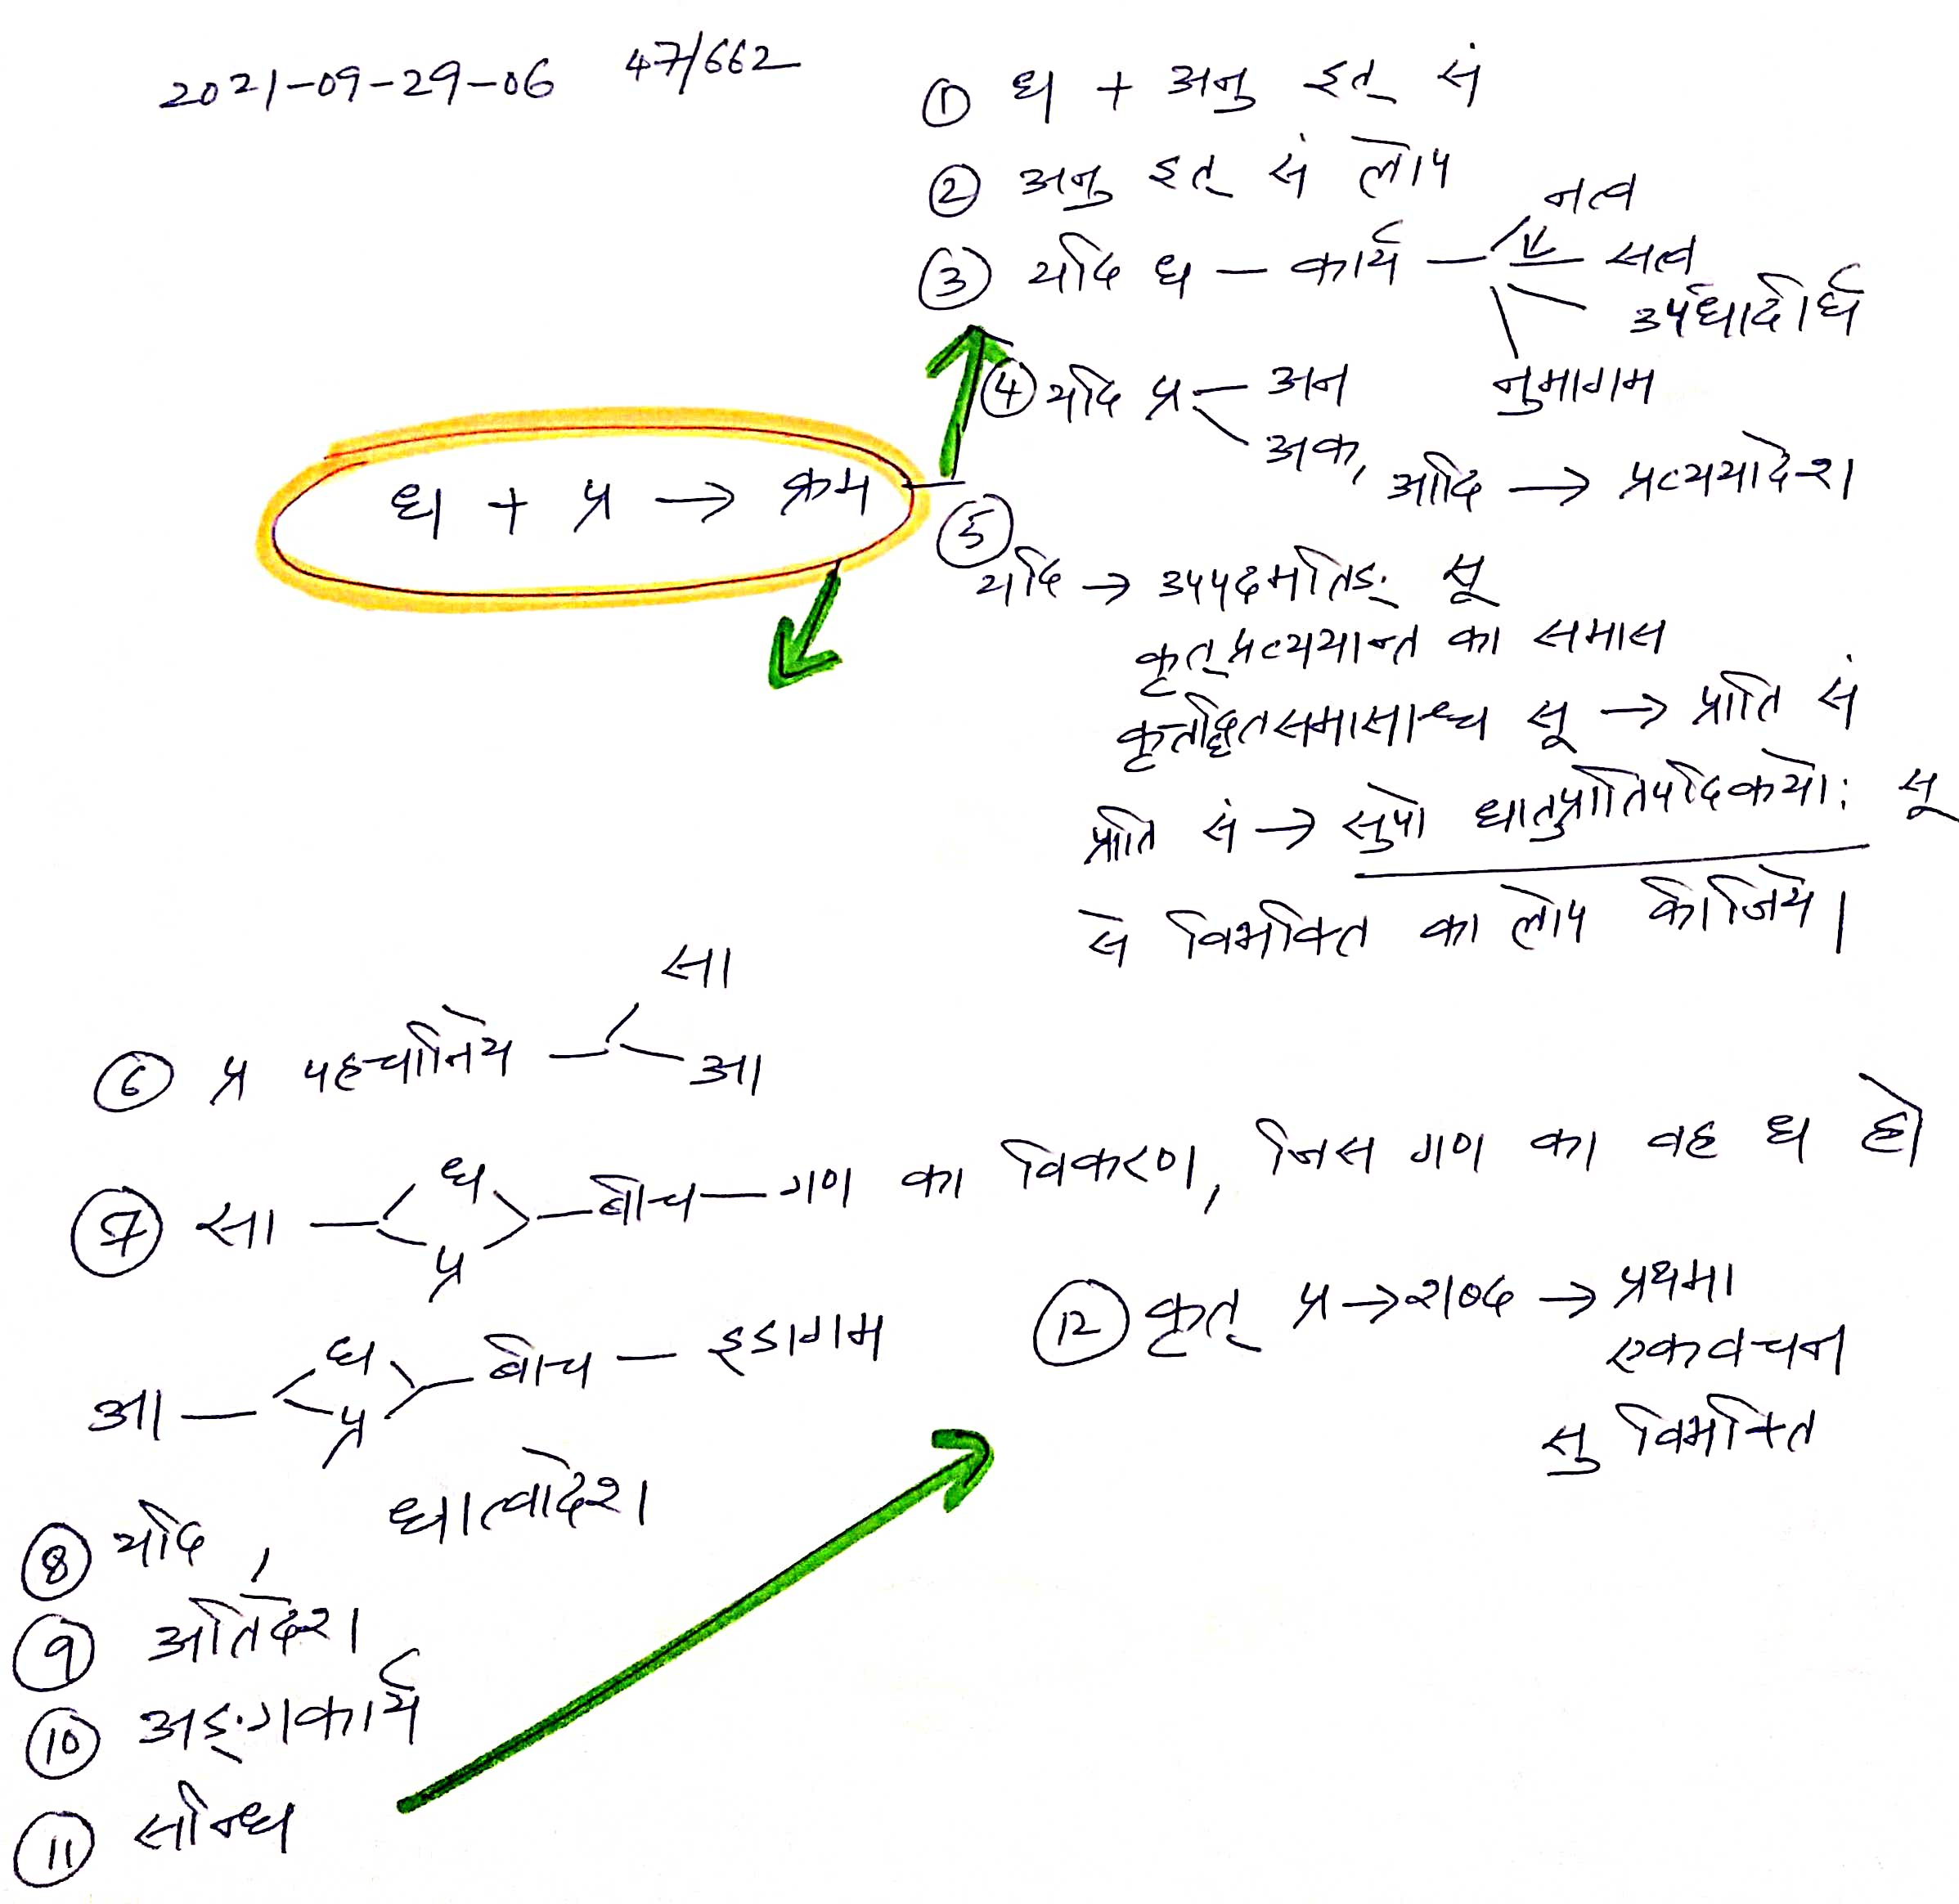 2021-09-29-06 47/662
① ध + अनु इत् सं
② अनु इत् सं लोप
③ यदि ध - कार्य - नत्व
सत्व
उपधादीर्घ
नुमागम
④ यदि प्र - अन
अक, आदि → प्रत्ययादेश
ध + प्र → क्रम
⑤
यदि → उपपदमतिङ् सू
कृत् प्रत्ययान्त का समास
कृत्तद्धितसमासाश्च सू → प्राति सं
प्राति सं → सुपो धातुप्रातिपदिकयोः सू
से विभक्ति का लोप कीजिये।
⑥ प्र पहचानिये - सा
आ
⑦ सा - ध प्र - बीच - गण का विकरण, जिस गण का वह ध हो
आ - ध प्र - बीच - इडागम
⑧ यदि, धात्वादेश
⑨ अतिदेश
⑩ अङ्गकार्य
⑪ सन्धि
⑫ कृत् प्र → शब्द → प्रथमा
एकवचन
सु विभक्ति